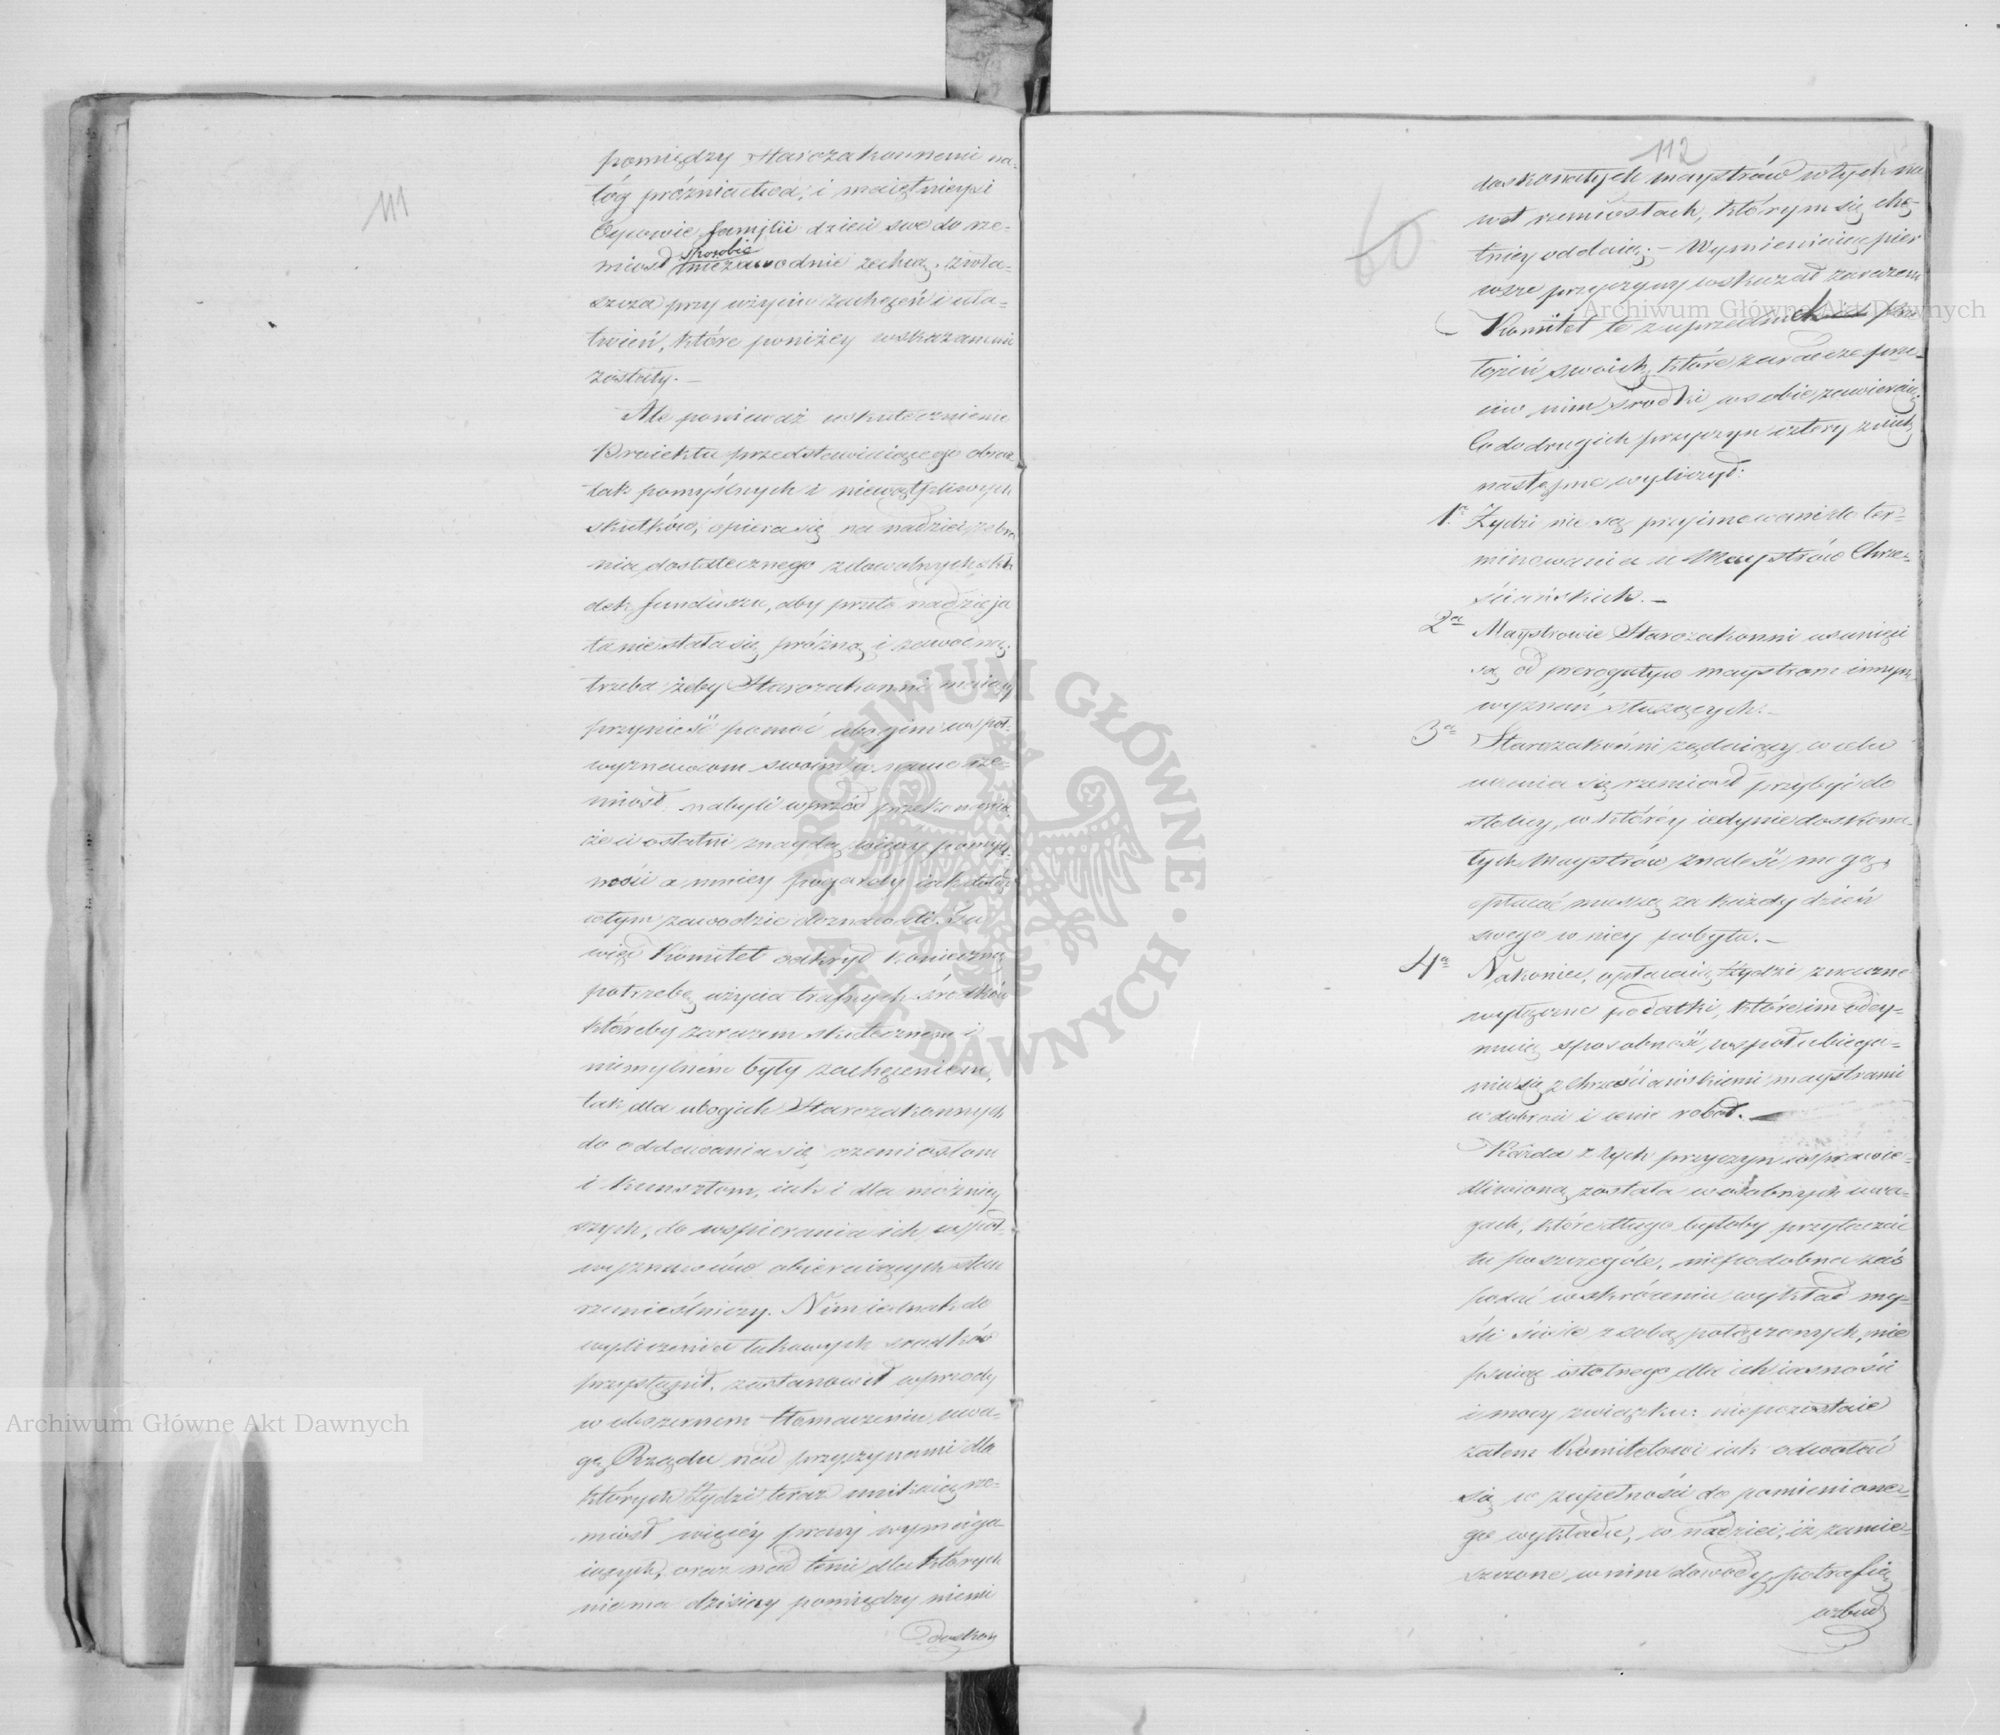 111
pomiędzy Starozakonnemi na-
łóg próżniactwa, i maiętnieysi
Oycowie familii dzieci swe do rze-
miosł sposobić niezawodnie zechcą, zwła-
szcza przy użyciu zachęceń i uła-
twień, które poniżey wskazanemi
zostały. —
Ale ponieważ uskutecznienie
Proiektu przedstawiaiącego obraz
tak pomyślnych i niewątpliwych
skutków, opiera się na nadziei zebra
nia dostatecznego z dowolnych skła
dek funduszu, aby przeto nadzieja
ta nie stała się próżną i zawodną;
trzeba żeby Starozakonni maiący
przynieść pomoc ubogim współ-
wyznawcom swoim w nauce rze-
miosł nabyli wprzód przekonania,
że ci ostatni znaydą więcéy pomyśl-
ności a mniey pogardy iak dotąd
w tym zawodzie doznawali. Tu
więc Komitet odkrył konieczną
potrzebę użycia trafnych środków
któreby zarazem skutecznem i
niemylném były zachęceniem,
tak dla ubogich Starozakonnych
do oddawania się rzemiosłom
i kunsztom, iak i dla możniey
szych, do wspierania ich współ-
wyznawców obieraiących stan
rzemieślniczy. Nim iednak do
wyliczenia takowych srodków
przystąpił, zastanowił wprzody
w obszernem tłomaczeniu uwa-
gę Rządu nad przyczynami dla
których Żydzi teraz unikaią rze-
miosł więcéy pracy wymaga-
iących, oraz nad temi dla których
niema dzisiay pomiędzy niemi
doskon
112
60
doskonałych maystrów w tych na
wet rzemiosłach, którym się chę-
tniey oddaią; — Wymieniaiąc pier
wsze przyczyny wskazał zarazem
Komitet te z uprzednich prze
łożeń swoich, które zaradcze prze-
ciw nim srodki w sobie zawieraią;
Co do drugich przyczyn cztery z nich
następne wyliczył:
1. Żydzi nie są przyimowani do ter-
minowania u Maystrów Chrze-
ściańskich. —
2a Maystrowie Starozakonni usunięci
są od prerogatyw maystrom innych
wyznań służących. —
3a Starozakonni żądaiący w celu
uczenia się rzemiosł przybyć do
stolicy, w któréy iedynie doskona-
łych Maystrów znaleść mogą,
opłacać muszą za każdy dzień
swego w niey pobytu. —
4a Nakoniec, opłacaią Żydzi znaczne
wyłączne podatki, które im odey-
muią sposobność współubiega-
nia się z Chrześciańskiemi maystrami
w dobroci i cenie robot. —
Każda z tych przyczyn usprawie-
dliwioną została w osobnych uwa-
gach, które długo byłoby przytaczać
tu poszczególe, niepodobna zaś
podać w skróceniu wykład my-
śli ściśle z sobą połączonych, nie
psuiąc istotnego dla ich iasności
i mocy związku: niepozostaie
zatem Komitetowi iak odwołać
się w zupełności do pomienione-
go wykładu, w nadziei, iż zamie-
szczone w nim dowody potrafią
wzbud
Archiwum Główne Akt Dawnych
Archiwum Główne Akt Dawnych
ARCHIWUM GŁÓWNE AKT DAWNYCH